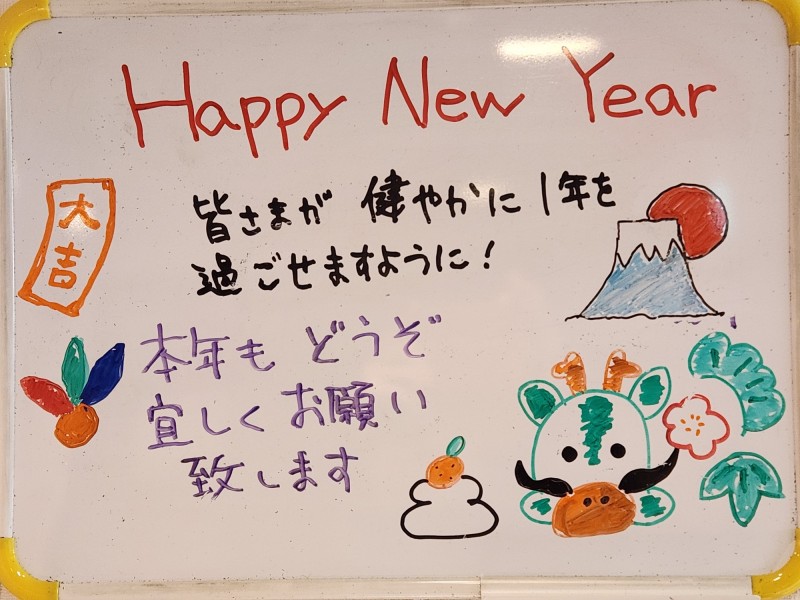 Happy New Year
大吉
皆さまが 健やかに 1年を
過ごせますように!
本年も どうぞ
宜しく お願い
致します